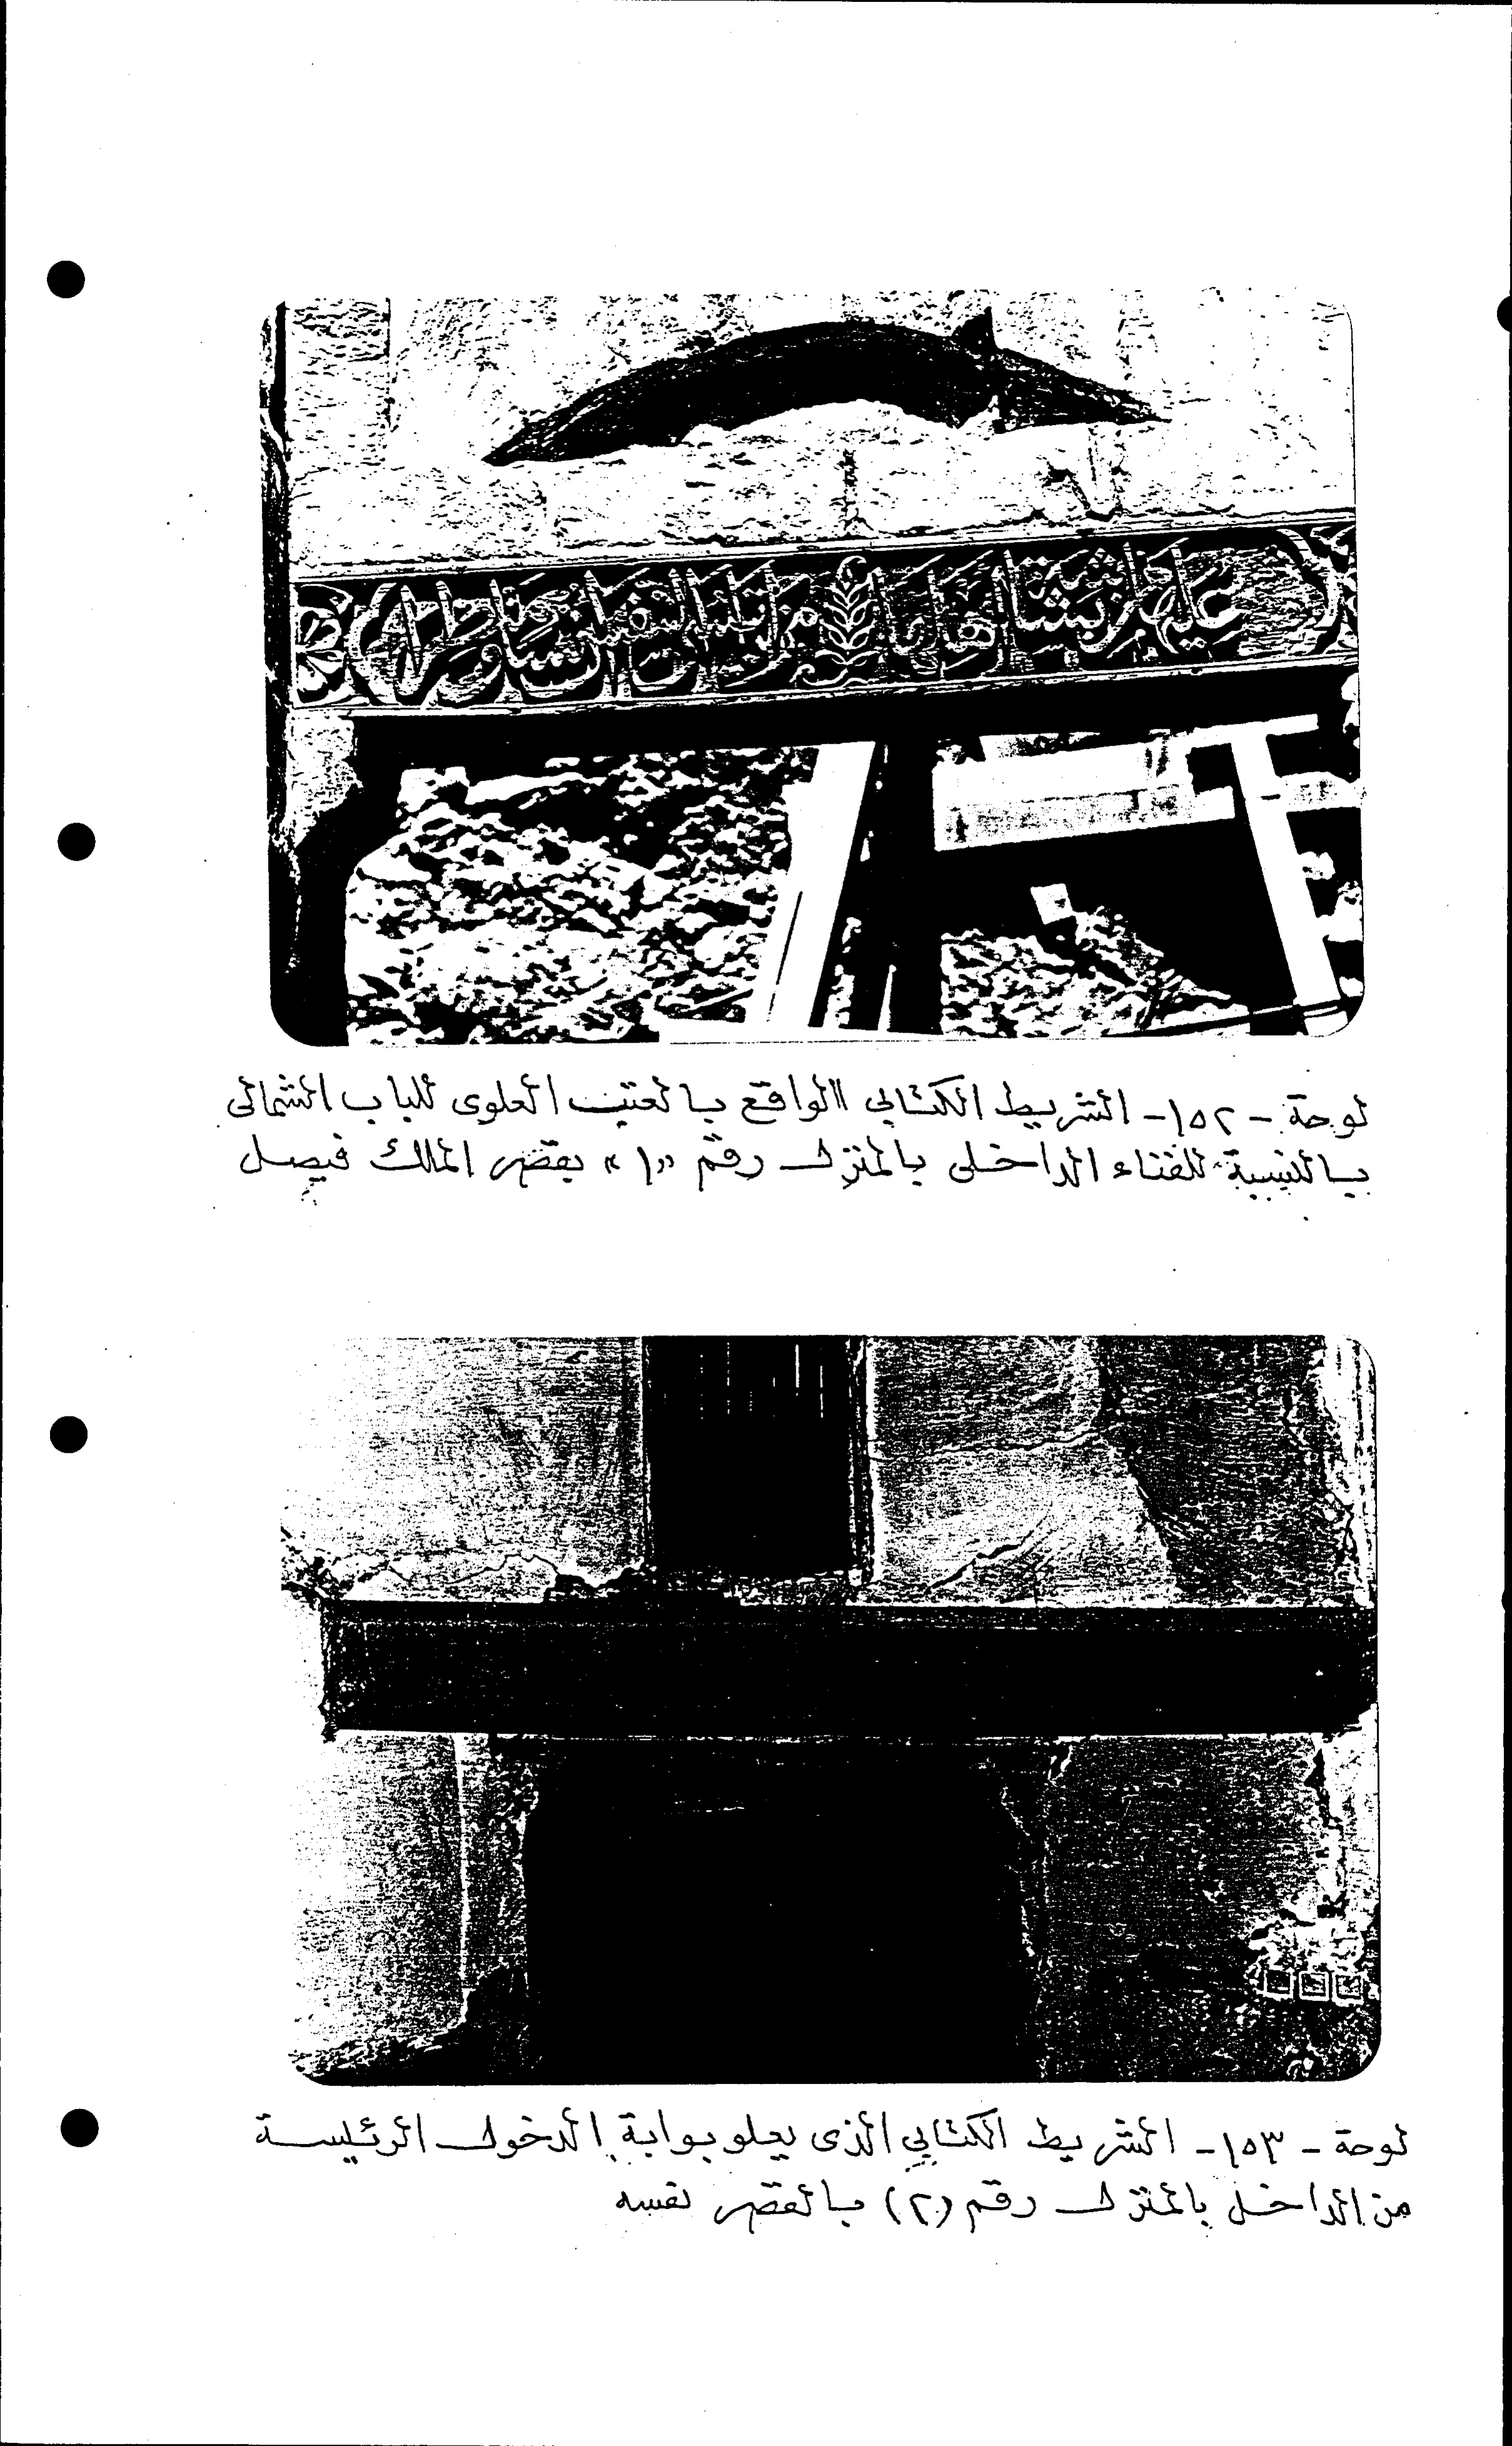 لوحة - ١٥٢ - الشريط الكتابي الواقع بالعتب العلوى للباب الشمالى
بالنسبة للفناء الداخلى بالمنزل رقم «١» بقصر الملك فيصل
لوحة - ١٥٣ - الشريط الكتابي الذى يعلو بوابة الدخول الرئيسة
من الداخل بالمنزل رقم (٢) بالقصر نفسه